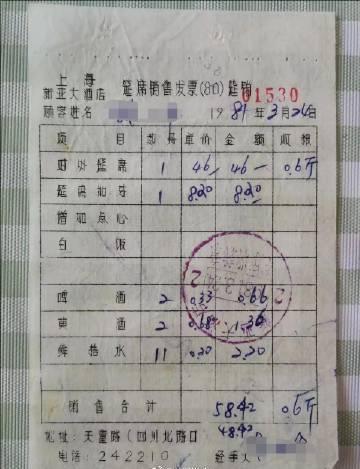 上海
新亚大酒店
筵席销售发票(80)筵销
01530
顾客姓名 1981年3月26日
项目 数量 单价 金额 顺粮
对外筵席 1 46- 46- 0.6斤
筵席加菜 1 8.20 8.20
增加点心
白饭
啤酒 2 0.33 0.66
黄酒 2 0.68 1.36
鲜桔水 11 0.20 2.20
销售合计 58.42 0.6斤
48.42
地址:天童路(四川北路口
电话:242210 经手人